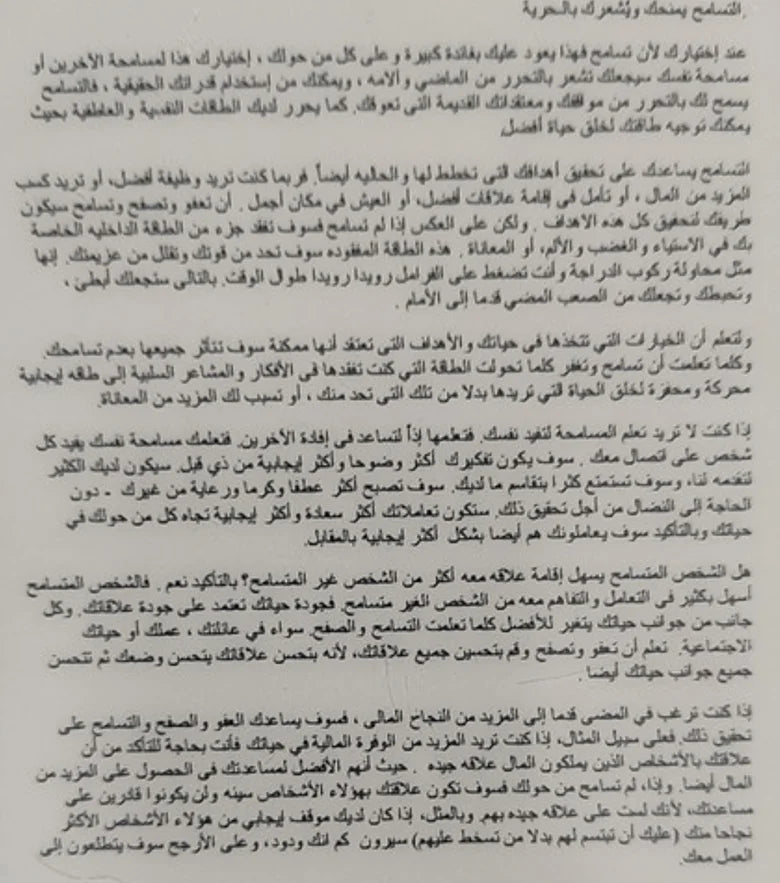 .التسامح يمنحك ويُشعرك بالحرية
عند إختيارك لأن تسامح فهذا يعود عليك بفائدة كبيرة وعلى كل من حولك ، إختيارك هذا لمسامحة الآخرين أو
مسامحة نفسك سيجعلك تشعر بالتحرر من الماضي وآلامه ، ويمكنك من إستخدام قدراتك الحقيقية ، فالتسامح
يسمح لك بالتحرر من مواقفك ومعتقداتك القديمة التى تعوقك. كما يحرر لديك الطاقات النفسية والعاطفية بحيث
يمكنك توجيه طاقتك لخلق حياة أفضل.
التسامح يساعدك على تحقيق أهدافك التى تخطط لها والحاليه أيضاً. فربما كنت تريد وظيفة أفضل، أو تريد كسب
المزيد من المال ، أو تأمل فى إقامة علاقات أفضل، أو العيش في مكان أجمل . أن تعفو وتصفح وتسامح سيكون
طريقك لتحقيق كل هذه الاهداف . ولكن على العكس إذا لم تسامح فسوف تفقد جزء من الطاقة الداخليه الخاصة
بك في الاستياء والغضب والألم، أو المعاناة . هذه الطاقة المفقوده سوف تحد من قوتك وتقلل من عزيمتك. إنها
مثل محاولة ركوب الدراجة وأنت تضغط على الفرامل رويدا رويدا طوال الوقت. بالتالى ستجعلك أبطئ ،
وتحبطك وتجعلك من الصعب المضي قدما إلى الأمام .
ولتعلم أن الخيارات التي تتخذها فى حياتك والأهداف التى تعتقد أنها ممكنة سوف تتأثر جميعها بعدم تسامحك.
وكلما تعلمت أن تسامح وتغفر كلما تحولت الطاقة التي كنت تفقدها فى الأفكار والمشاعر السلبية إلى طاقه إيجابية
محركة ومحفزة لخلق الحياة التي تريدها بدلا من تلك التى تحد منك ، أو تسبب لك المزيد من المعاناة.
إذا كنت لا تريد تعلم المسامحة لتفيد نفسك. فتعلمها إذاً لتساعد فى إفادة الآخرين. فتعلمك مسامحة نفسك يفيد كل
شخص على اتصال معك . سوف يكون تفكيرك أكثر وضوحا وأكثر إيجابية من ذي قبل. سيكون لديك الكثير
لتقدمه لنا، وسوف تستمتع كثرا بتقاسم ما لديك. سوف تصبح أكثر عطفا وكرما ورعاية من غيرك - دون
الحاجة إلى النضال من أجل تحقيق ذلك. ستكون تعاملاتك أكثر سعادة وأكثر إيجابية تجاه كل من حولك في
حياتك وبالتأكيد سوف يعاملونك هم أيضا بشكل أكثر إيجابية بالمقابل.
هل الشخص المتسامح يسهل إقامة علاقه معه أكثر من الشخص غير المتسامح؟ بالتأكيد نعم . فالشخص المتسامح
أسهل بكثير فى التعامل والتفاهم معه من الشخص الغير متسامح. فجودة حياتك تعتمد على جودة علاقاتك. وكل
جانب من جوانب حياتك يتغير للأفضل كلما تعلمت التسامح والصفح. سواء في عائلتك ، عملك أو حياتك
الاجتماعية. تعلم أن تعفو وتصفح وقم بتحسين جميع علاقاتك، لأنه بتحسن علاقاتك يتحسن وضعك ثم تتحسن
جميع جوانب حياتك أيضا .
إذا كنت ترغب في المضى قدما إلى المزيد من النجاح المالى ، فسوف يساعدك العفو والصفح والتسامح على
تحقيق ذلك. فعلى سبيل المثال، إذا كنت تريد المزيد من الوفرة المالية في حياتك فأنت بحاجة للتأكد من أن
علاقتك بالأشخاص الذين يملكون المال علاقه جيده . حيث أنهم الأفضل لمساعدتك فى الحصول على المزيد من
المال أيضا. وإذا، لم تسامح من حولك فسوف تكون علاقتك بهؤلاء الأشخاص سيئه ولن يكونوا قادرين على
مساعدتك، لأنك لست على علاقه جيده بهم. وبالمثل، إذا كان لديك موقف إيجابي من هؤلاء الأشخاص الأكثر
نجاحا منك (عليك أن تبتسم لهم بدلا من تسخط عليهم) سيرون كم انك ودود، وعلى الأرجح سوف يتطلعون إلى
العمل معك.